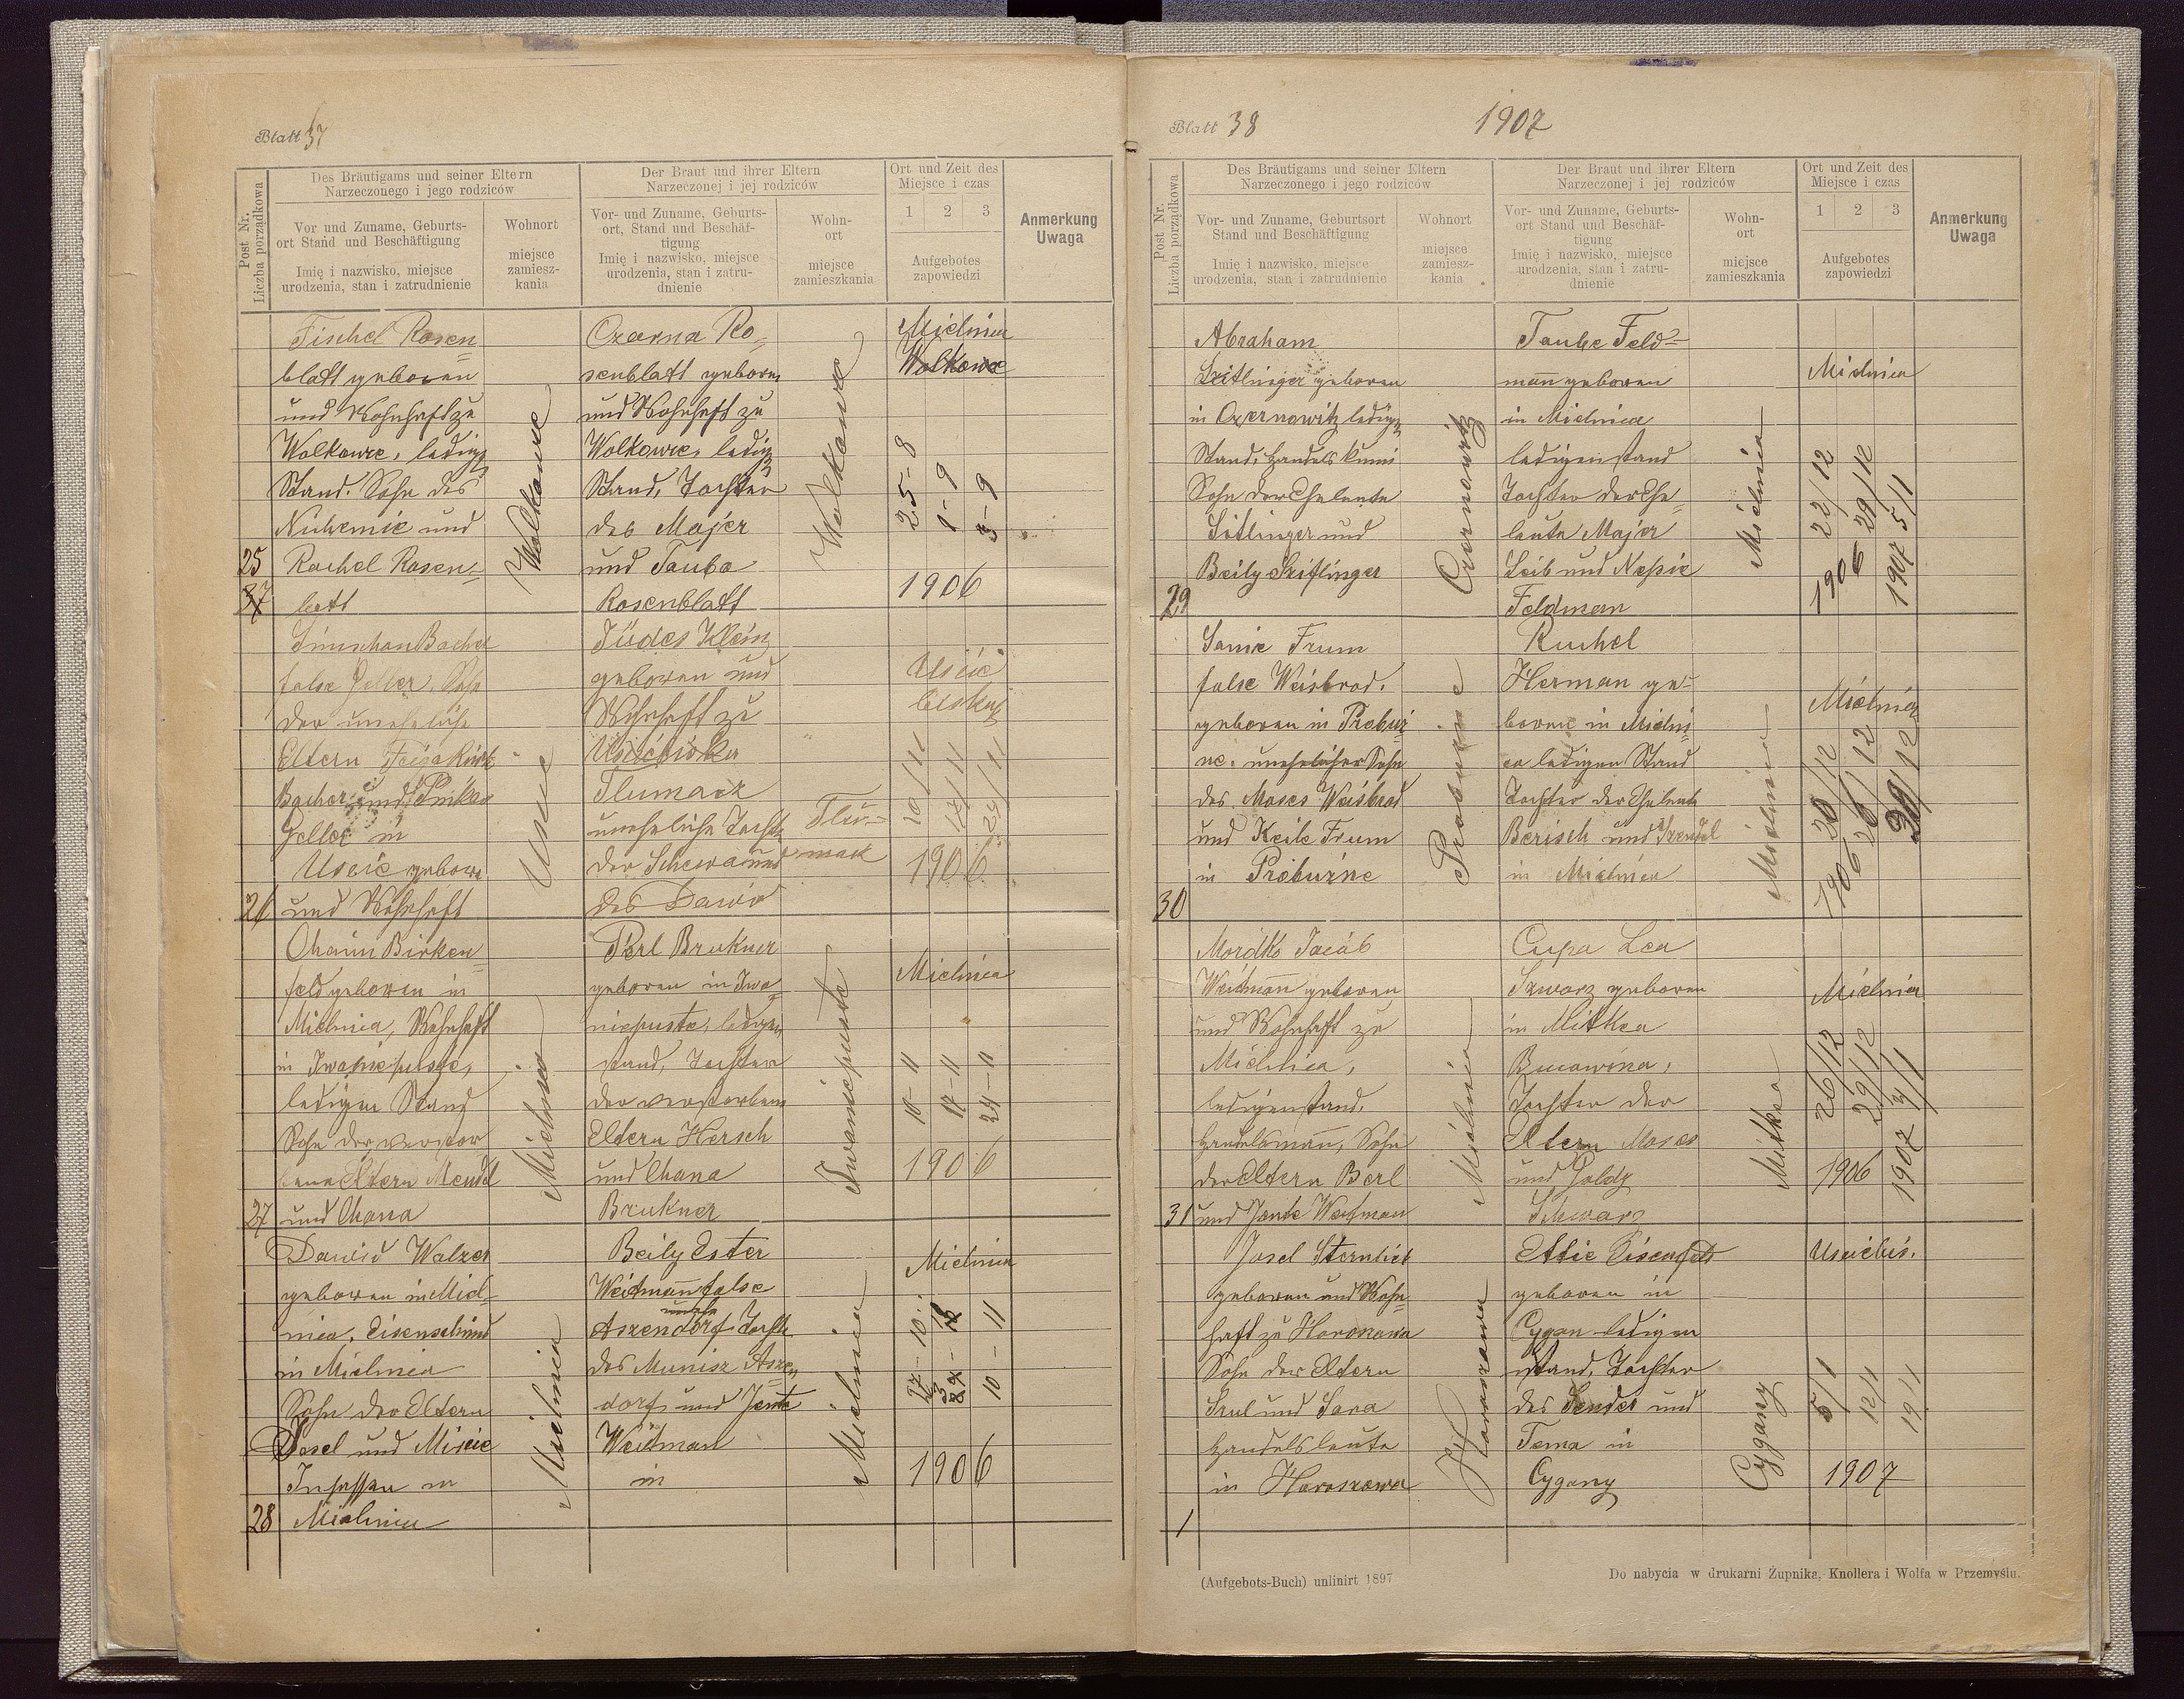 Blatt 37
Post Nr.
Liczba porządkowa
Des Bräutigams und seiner Eltern
Narzeczonego i jego rodziców
Der Braut und ihrer Eltern
Narzeczonej i jej rodziców
Ort und Zeit des
Miejsce i czas
Vor und Zuname, Geburts-
ort Stand und Beschäftigung
Imię i nazwisko, miejsce
urodzenia, stan i zatrudnienie
Wohnort
miejsce
zamiesz-
kania
Vor- und Zuname, Geburts-
ort, Stand und Beschäf-
tigung
Imię i nazwisko, miejsce
urodzenia, stan i zatru-
dnienie
Wohn-
ort
miejsce
zamieszkania
1 2 3
Aufgebotes
zapowiedzi
Anmerkung
Uwaga
25
Fischel Rosen=
blatt geboren
und Wohnhaft zu
Wolkowce, ledig
Stand. Sohn des
Nuchemie und
Rachel Rosen=
blatt
Wolkowce
Czarna Ro=
senblatt geboren
und Wohnhaft zu
Wolkowce, ledig
Stand, Tochter
des Majer
und Tauba
Rosenblatt
Wolkowce
Mielnica
Wolkowce
25-8
1-9
3-9
1906
26
Simschon Bachor
false Geller. Sohn
der uneheliche
Eltern
Bachor und Pinkas
Geller in
Uscie geboren
und Wohnhaft
Uscie
Jüdes Klein
geboren und
Wohnhaft zu
Tlumacz
uneheliche Tochter
der Schewa und
des Dawid
Tlu=
macz
Uście
biskup
10/11
17/11
24/11
1906
27
Chaim Birken=
feld geboren in
Mielnica, Wohnhaft
in Iwaniepuste,
ledigen Stand
Sohn der verstor
bene Eltern Mendel
und Chana
Mielnica
Perl Brukner
geboren in Iwa=
niepuste, ledigen
stand, Tochter
der verstorbene
Eltern Hersch
und Chana
Brukner
Iwaniepuste
Mielnica
10-11
17-11
24-11
1906
28
Dawid Walzer
geboren in Miel=
nica, Eisenschmid
in Mielnica
Sohn der Eltern
Josel und Miseie
Insassen in
Mielnica
Mielnica
Beily Ester
Weitmann false
unehe
Aszendorf Tocht
des Munisz Aszen=
dorf und Jente
Weitman
in
Mielnica
Mielnica
27-10
10-11
1906
Blatt 38
1907
Post Nr.
Liczba porządkowa
Des Bräutigams und seiner Eltern
Narzeczonego i jego rodziców
Der Braut und ihrer Eltern
Narzeczonej i jej rodziców
Ort und Zeit des
Miejsce i czas
Vor- und Zuname, Geburtsort
Stand und Beschäftigung
Imię i nazwisko, miejsce
urodzenia, stan i zatrudnienie
Wohnort
miejsce
zamiesz-
kania
Vor- und Zuname, Geburts-
ort Stand und Beschäf-
tigung
Imię i nazwisko, miejsce
urodzenia, stan i zatru-
dnienie
Wohn-
ort
miejsce
zamieszkania
1 2 3
Aufgebotes
zapowiedzi
Anmerkung
Uwaga
29
Abraham
Seitlinger geboren
in Czernowitz ledig
Stand, Handels
Sohn der Eheleute
Sitlinger und
Beily Seitlinger
Czernowitz
Taube Feld=
mann geboren
in Mielnica
ledigen stand
Tochter der Ehe=
leute Majer
Leib und
Feldman
Mielnica
Mielnica
22/12
29/12
5/1
1906
1907
30
Sanie Frum
false Weisbrod.
geboren in Probuż
ne. unehelicher Sohn
des Moses Weisbrod
und Keile Frum
in Probużne
Probużne
Ruchel
Herman ge=
boren in Mielni
ca ledigen Stand
Tochter der Eheleute
Berisch und
in Mielnica
Mielnica
Mielnica
20/12
26/12
29/12
1906
31
Mordko Jacob
Weitmann geboren
und Wohnhaft zu
Mielnica,
ledigenstand,
Handelsmann, Sohn
der Eltern Berl
und Jente Weitman
Mielnica
Cupa Lea
Szwarz geboren
in Mitkea
Bucowina,
Tochter der
Eltern Moses
und Goldy
Schwarz
Mitkea
Mielnica
26/12
29/12
1906
1907
1
Josel Sternlieb
geboren und Wohn=
haft zu Horoszowa
Sohn der Eltern
Srul und Sara
Handelsleute
in Horoszowa
Horoszowa
Ettie Eisenfeld
geboren in
Cygan ledigen
stand, Tochter
des Sender und
Tema in
Cygany
Cygany
Usciebis.
5/1
12/1
19/1
1907
(Aufgebots-Buch) unlinirt 1897
Do nabycia w drukarni Żupnika, Knollera i Wolfa w Przemyślu.